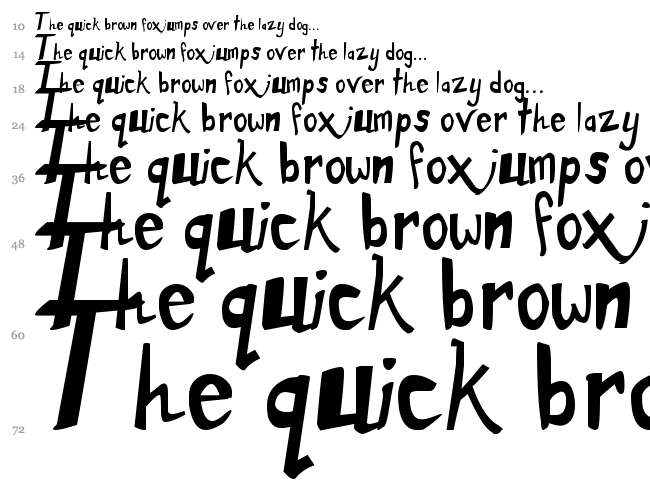 10 The quick brown fox jumps over the lazy dog...
14 The quick brown fox jumps over the lazy dog...
18 The quick brown fox jumps over the lazy dog...
24 The quick brown fox jumps over the lazy
36 The quick brown fox jumps ov
48 The quick brown fox j
60 The quick brown
72 The quick bro